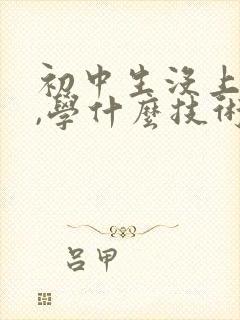 初中生没上
,學什麼技術
吕甲